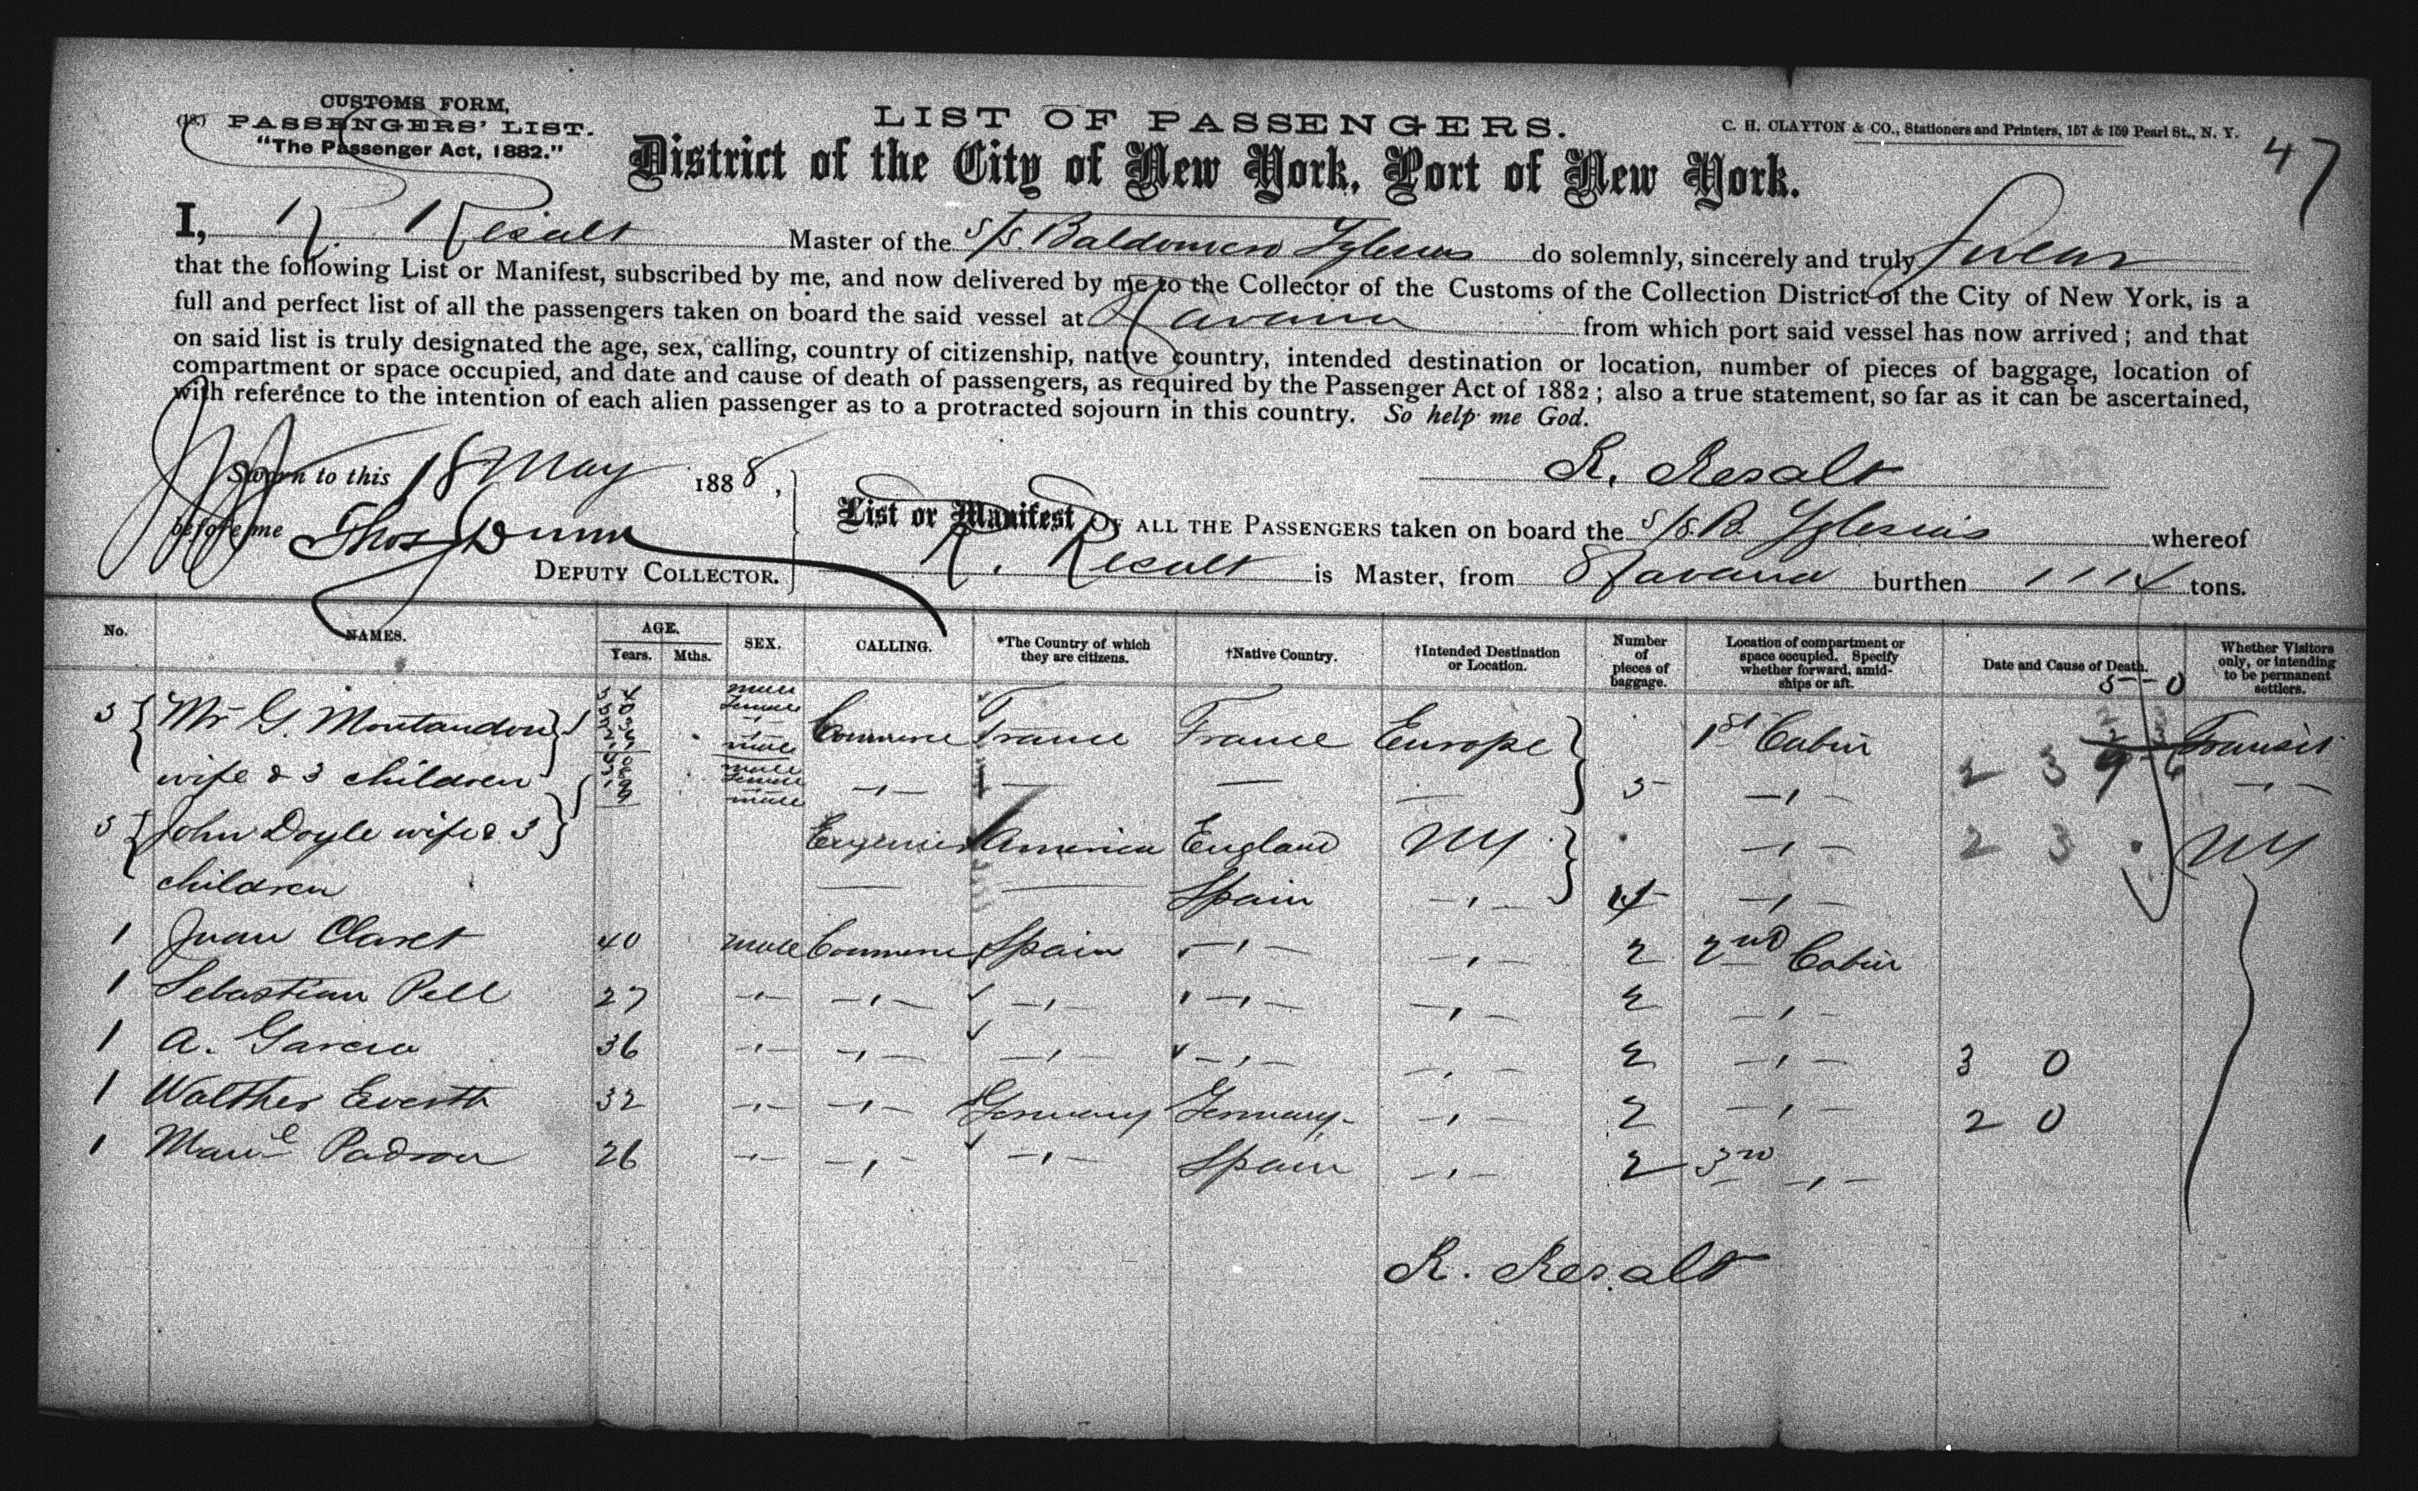 CUSTOMS FORM,
(18.) PASSENGERS' LIST.
"The Passenger Act, 1882."
LIST OF PASSENGERS.
C. H. CLAYTON & CO., Stationers and Printers, 157 & 159 Pearl St., N. Y.
47
District of the City of New York, Port of New York.
I, R. Resalt Master of the S/S. Baldomero Yglesias do solemnly, sincerely and truly Swear
that the following List or Manifest, subscribed by me, and now delivered by me to the Collector of the Customs of the Collection District of the City of New York, is a
full and perfect list of all the passengers taken on board the said vessel at Havana from which port said vessel has now arrived; and that
on said list is truly designated the age, sex, calling, country of citizenship, native country, intended destination or location, number of pieces of baggage, location of
compartment or space occupied, and date and cause of death of passengers, as required by the Passenger Act of 1882; also a true statement, so far as it can be ascertained,
with reference to the intention of each alien passenger as to a protracted sojourn in this country. So help me God.
Sworn to this 18 May 1888,
R. Resalt
before me Thos Dunn
DEPUTY COLLECTOR.
List or Manifest OF ALL THE PASSENGERS taken on board the S/S. B. Yglesias whereof
R. Resalt is Master, from Havana burthen 1114 tons.
No. NAMES. AGE. Years. Mths. SEX. CALLING. *The Country of which they are citizens. †Native Country. †Intended Destination or Location. Number of pieces of baggage. Location of compartment or space occupied. Specify whether forward, amidships or aft. Date and Cause of Death. Whether Visitors only, or intending to be permanent settlers.
5 Mr G. Montandon Commerce France France Europe 1st Cabin Transit
wife & 3 children —"— — — — 5 —"— 2 3 —"—
5 John Doyle wife & 3 America England NY —"— 2 3 NY
children — — Spain —"— 14 —"—
1 Juan Claret 40 male Commerce Spain —"— —"— 2 2nd Cabin
1 Sebastian Pell 27 —"— —"— —"— —"— —"— 2 —"—
1 A. Garcia 36 —"— —"— —"— —"— —"— 2 —"— 3 0
1 Walther Everth 32 —"— —"— Germany Germany —"— 2 —"— 2 0
1 Manl Padron 26 —"— —"— —"— Spain —"— 2 3rd —"—
R. Resalt